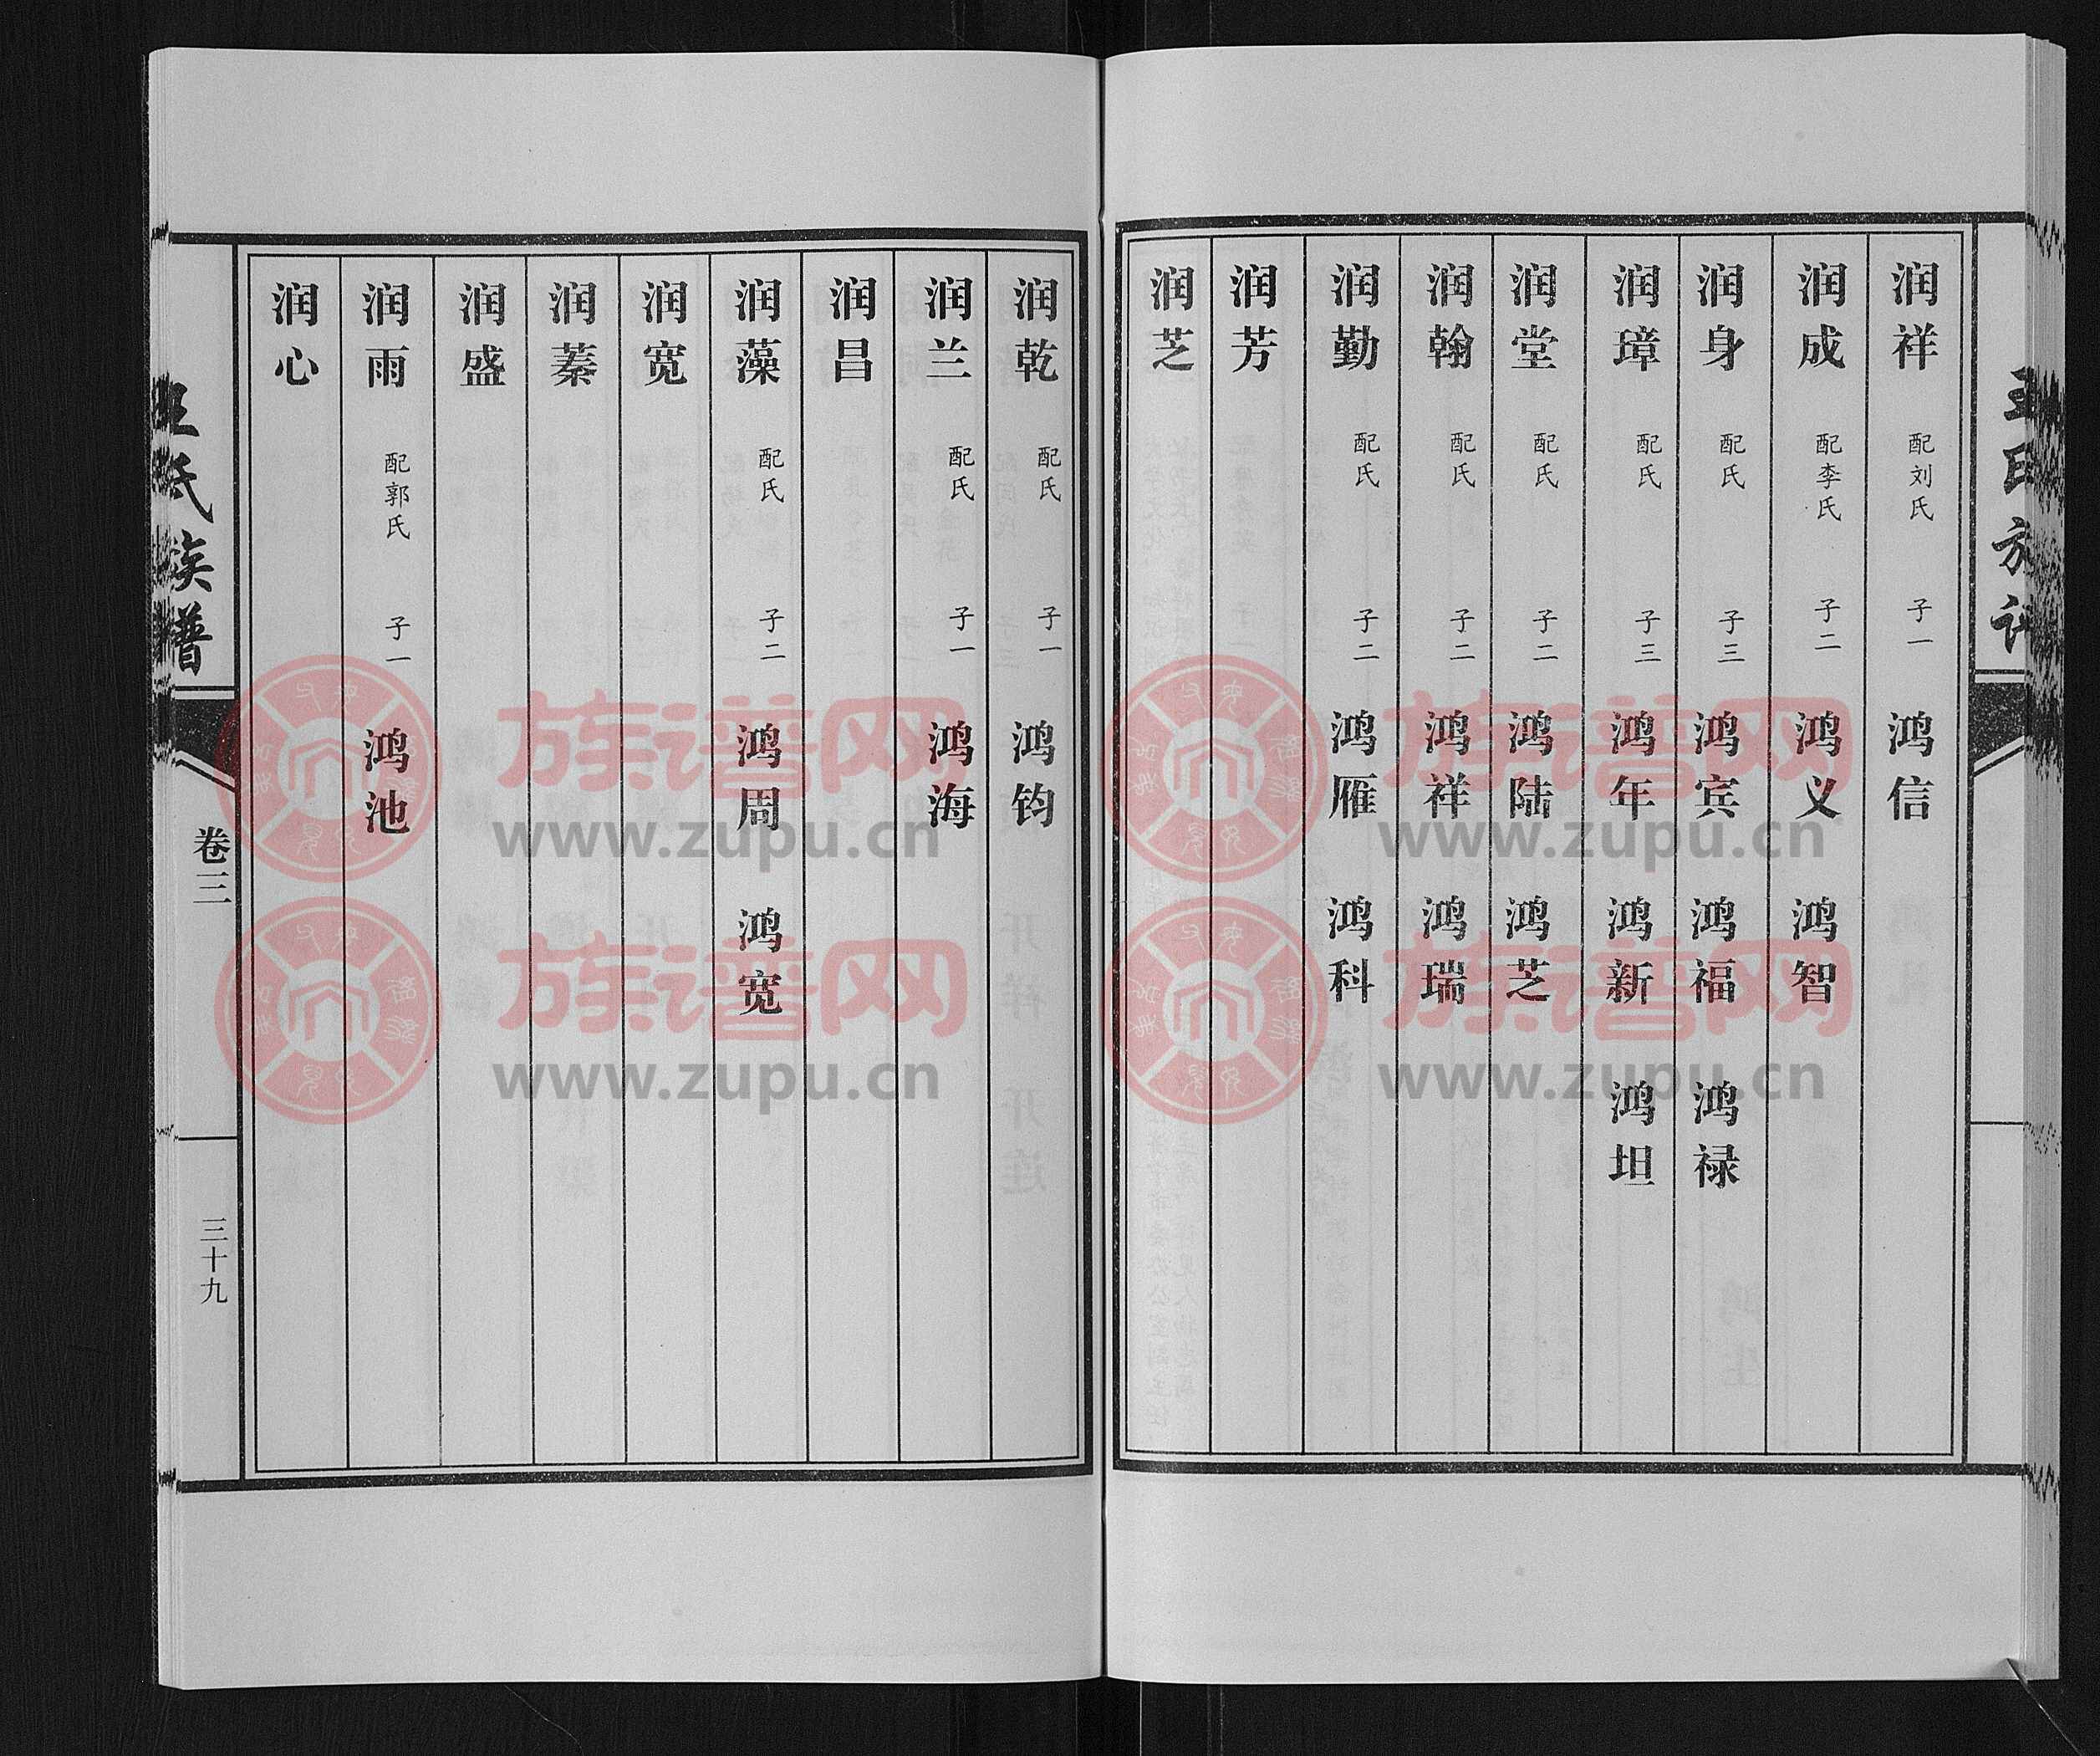 王氏族谱
润祥 配刘氏 子一 鸿信
润成 配李氏 子二 鸿义 鸿智
润身 配氏 子三 鸿宾 鸿福 鸿禄
润璋 配氏 子三 鸿年 鸿新 鸿坦
润堂 配氏 子二 鸿陆 鸿芝
润翰 配氏 子二 鸿祥 鸿瑞
润勤 配氏 子二 鸿雁 鸿科
润芳
润芝
润乾 配氏 子一 鸿钧
润兰 配氏 子一 鸿海
润昌
润藻 配氏 子二 鸿周 鸿宽
润宽
润蓁
润盛
润雨 配郭氏 子一 鸿池
润心
王氏族谱
卷三
三十九
族谱网
www.zupu.cn
族谱网
www.zupu.cn
族谱网
www.zupu.cn
族谱网
www.zupu.cn